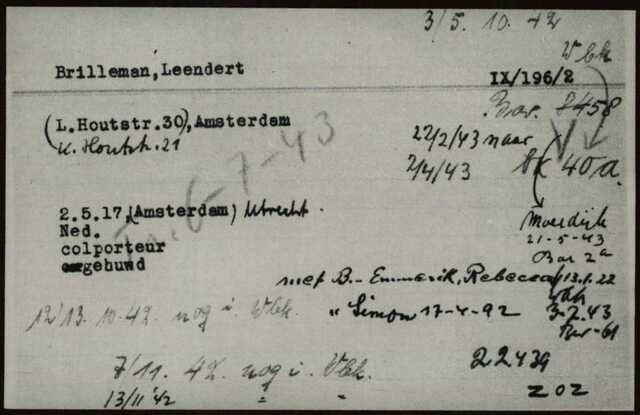 3/5. 10. 42
Wbk
Brilleman, Leendert
IX/196/2
Bar. 8458
(L.Houtstr.30), Amsterdam
22/2/43 naar
K. Houtstr. 21
2/4/43
40 a.
Tr. 6-7-43
2.5.17, (Amsterdam) Utrecht.
Ned.
colporteur
gehuwd
Moerdijk
21-5-43
Bar 2a
met B.-Emmerik, Rebecca 13.1.22
12/13. 10-42. nog i. Wbk.
" Simon 17-4-92
3-2.43
Bar-61
7/11. 42. nog i. Vbk.
22439
13/11 '42 " "
ZOZ